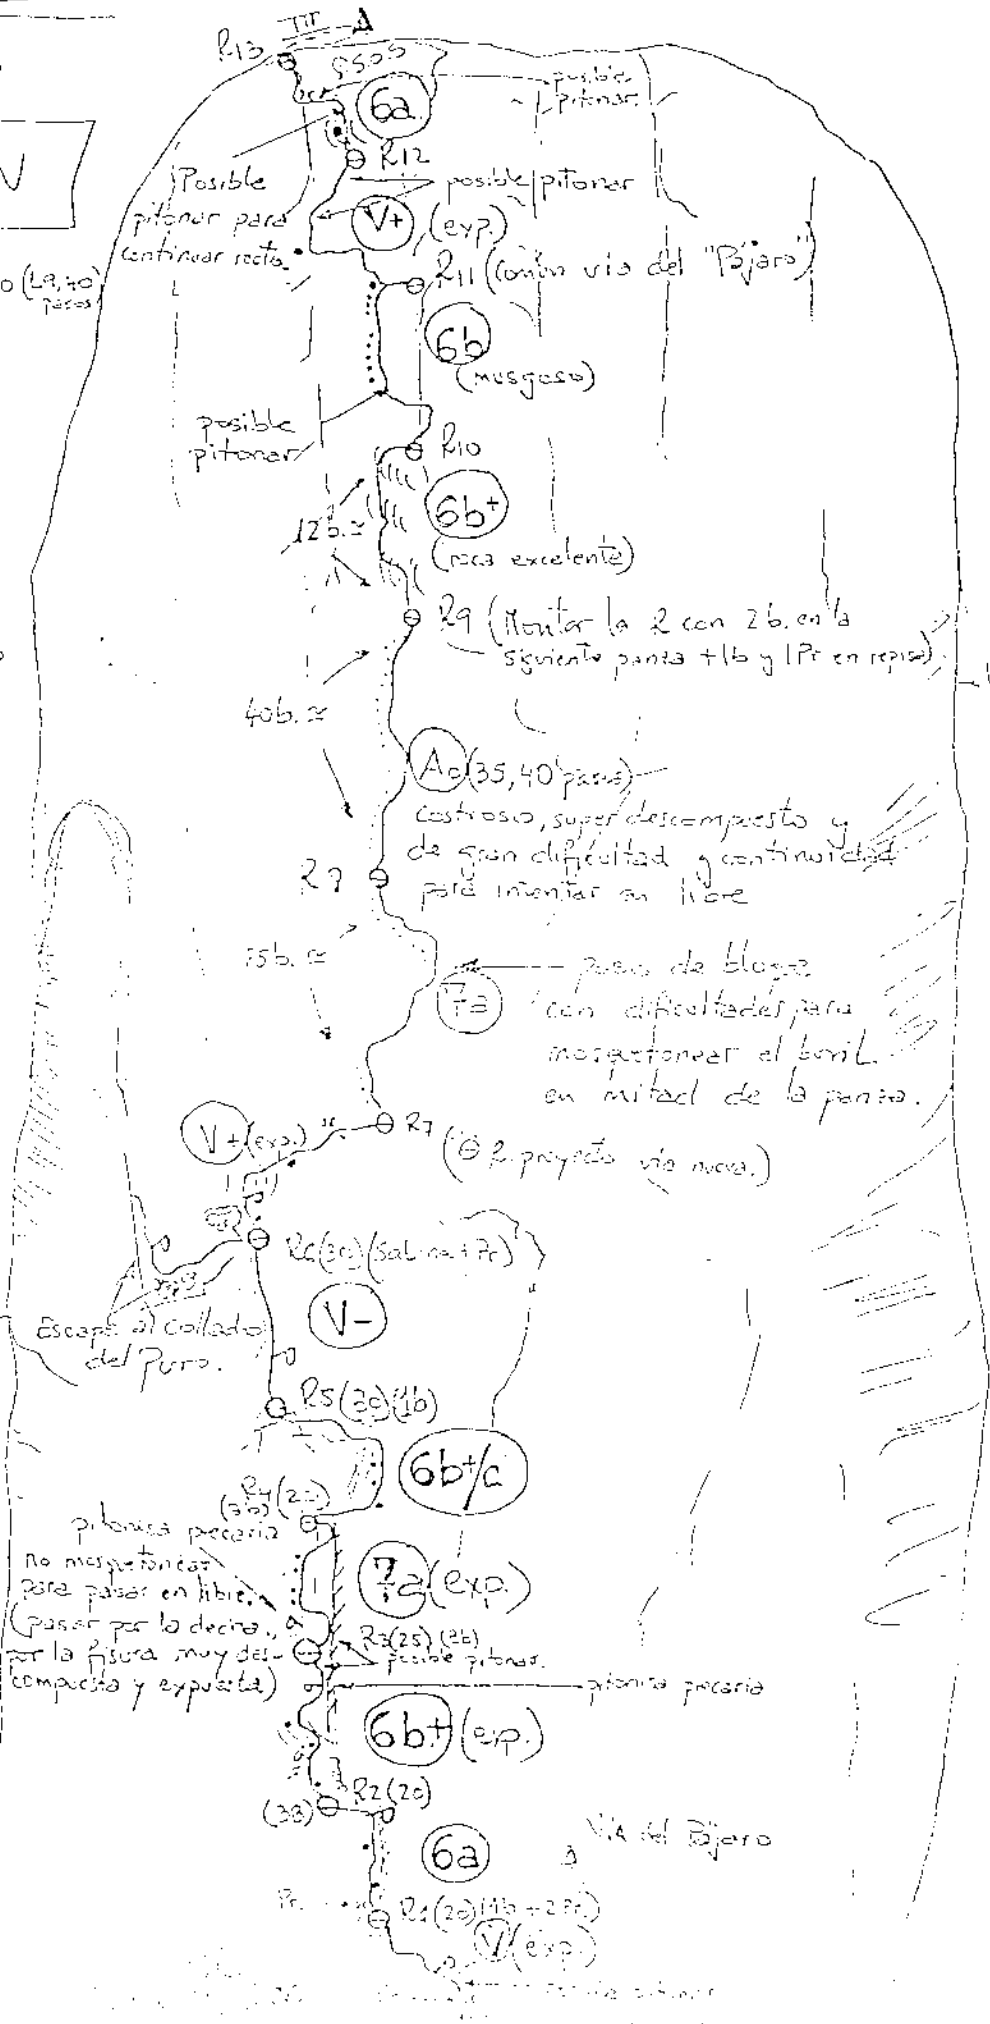 R13
psos
6a
posible
pitonar
V
R12
Posible
pitonar para
continuar recto.
posible pitonar
V+ (exp.)
R11 (común vía del "Pájaro")
6b
(musgoso)
posible
pitonar
R10
6b+
12b. ≃
(roca excelente)
R9 (Montar la R con 2b. en la
siguiente panza + 1b y 1Pr en repisa)
40b. ≃
Ao (35,40 pasos)
costroso, super descompuesto y
de gran dificultad y continuidad
para intentar en libre
15b. ≃
paso de bloque
con dificultades para
mosquetonear el buril
en mitad de la panza.
7a
R7
V+ (exp.)
(⊖ R. proyecto vía nueva.)
R6 (30) (Sabina + Pr)
V-
Escape al collado
del Puro.
R5 (30) (1b)
6b+/c
R4 (20)
pitonisa precaria
no mosquetonear
para pasar en libre.
(pasar por la decha.,
por la fisura muy des-
compuesta y expuesta)
7a (exp.)
R3 (25) (2b)
posible pitonar.
pitonisa precaria
6b+ (exp.)
R2 (20)
(3B)
Vía del Pájaro
6a
Pr.
R1 (20) (1b + 2Pr.)
V (exp.)